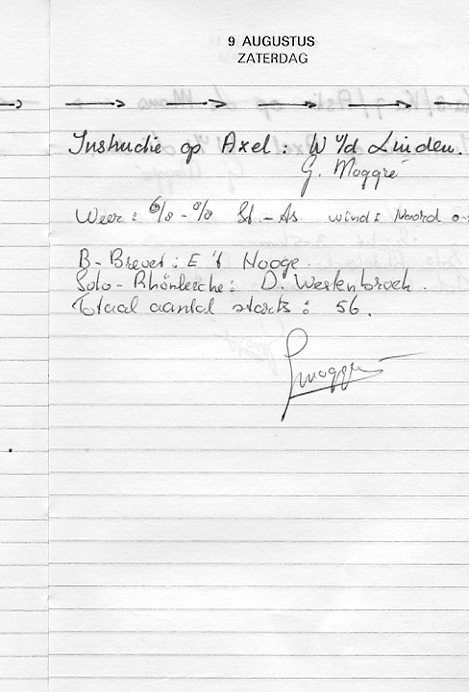 9 AUGUSTUS
ZATERDAG
Instructie op Axel: W v/d Linden.
G. Moggré
Weer: 6/8 - 0/8 St. - As. wind: Noord
B-Brevet: E 't Hooge.
Solo-Rhönlerche: D. Westenbroek.
Totaal aantal starts: 56.
Gmoggré